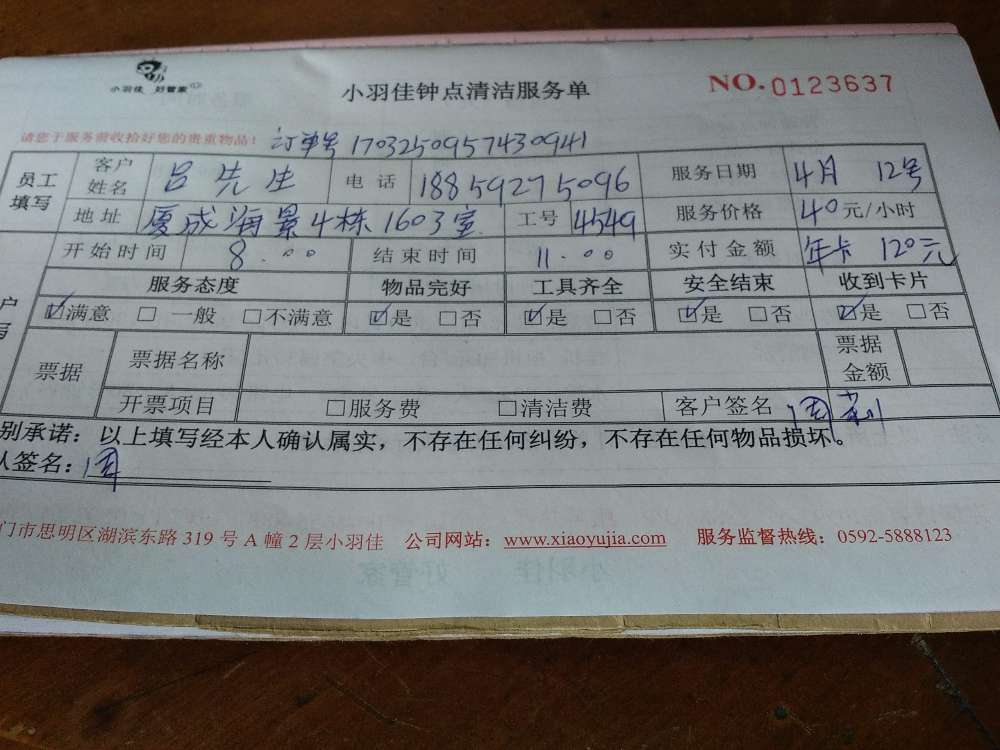 小羽佳 好管家
小羽佳钟点清洁服务单
NO.0123637
请您于服务前收拾好您的贵重物品！ 订单号 1703250957430941
员工填写 客户姓名 吕先生 电话 18859275096 服务日期 4月 12号
地址 厦成海景4栋1603室 工号 4549 服务价格 40元/小时
开始时间 8.00 结束时间 11.00 实付金额 年卡 120元
服务态度 物品完好 工具齐全 安全结束 收到卡片
☑满意 □ 一般 □不满意 ☑是 □否 ☑是 □否 ☑是 □否 ☑是 □否
票据 票据名称 票据金额
开票项目 □服务费 □清洁费 客户签名
别承诺：以上填写经本人确认属实，不存在任何纠纷，不存在任何物品损坏。
人签名：
门市思明区湖滨东路 319 号 A 幢 2 层小羽佳 公司网站：www.xiaoyujia.com 服务监督热线：0592-5888123